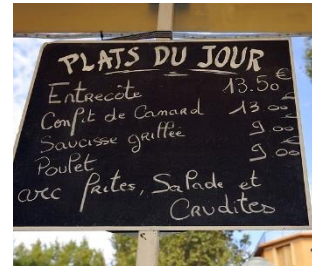 PLATS DU JOUR
Entrecôte 13.50 €
Confit de Canard 13.00
Saucisse grillée 9.00
Poulet 9.00
avec frites, Salade et
Crudites